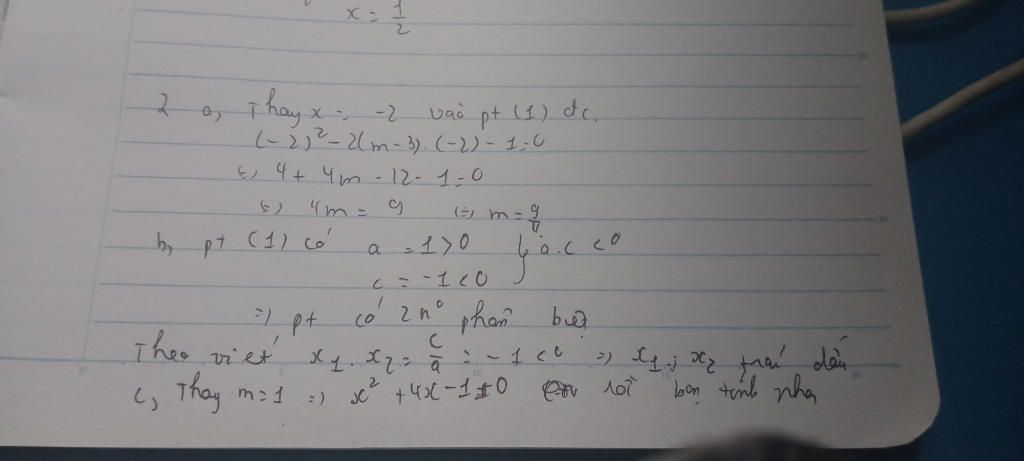 x = 1/2
2 a, Thay x = -2 vào pt (1) đc.
(-2)² - 2(m-3).(-2) - 1 = 0
(=) 4 + 4m - 12 - 1 = 0
(=) 4m = 9 (=) m = 9/4
b, pt (1) có a = 1 > 0 } a.c < 0
c = -1 < 0
=) pt có 2 n° phân biệt
Theo viét x₁.x₂ = c/a = -1 < 0 =) x₁; x₂ trái dấu
c, Thay m=1 =) x² + 4x - 1 = 0 rồi bạn tính nha